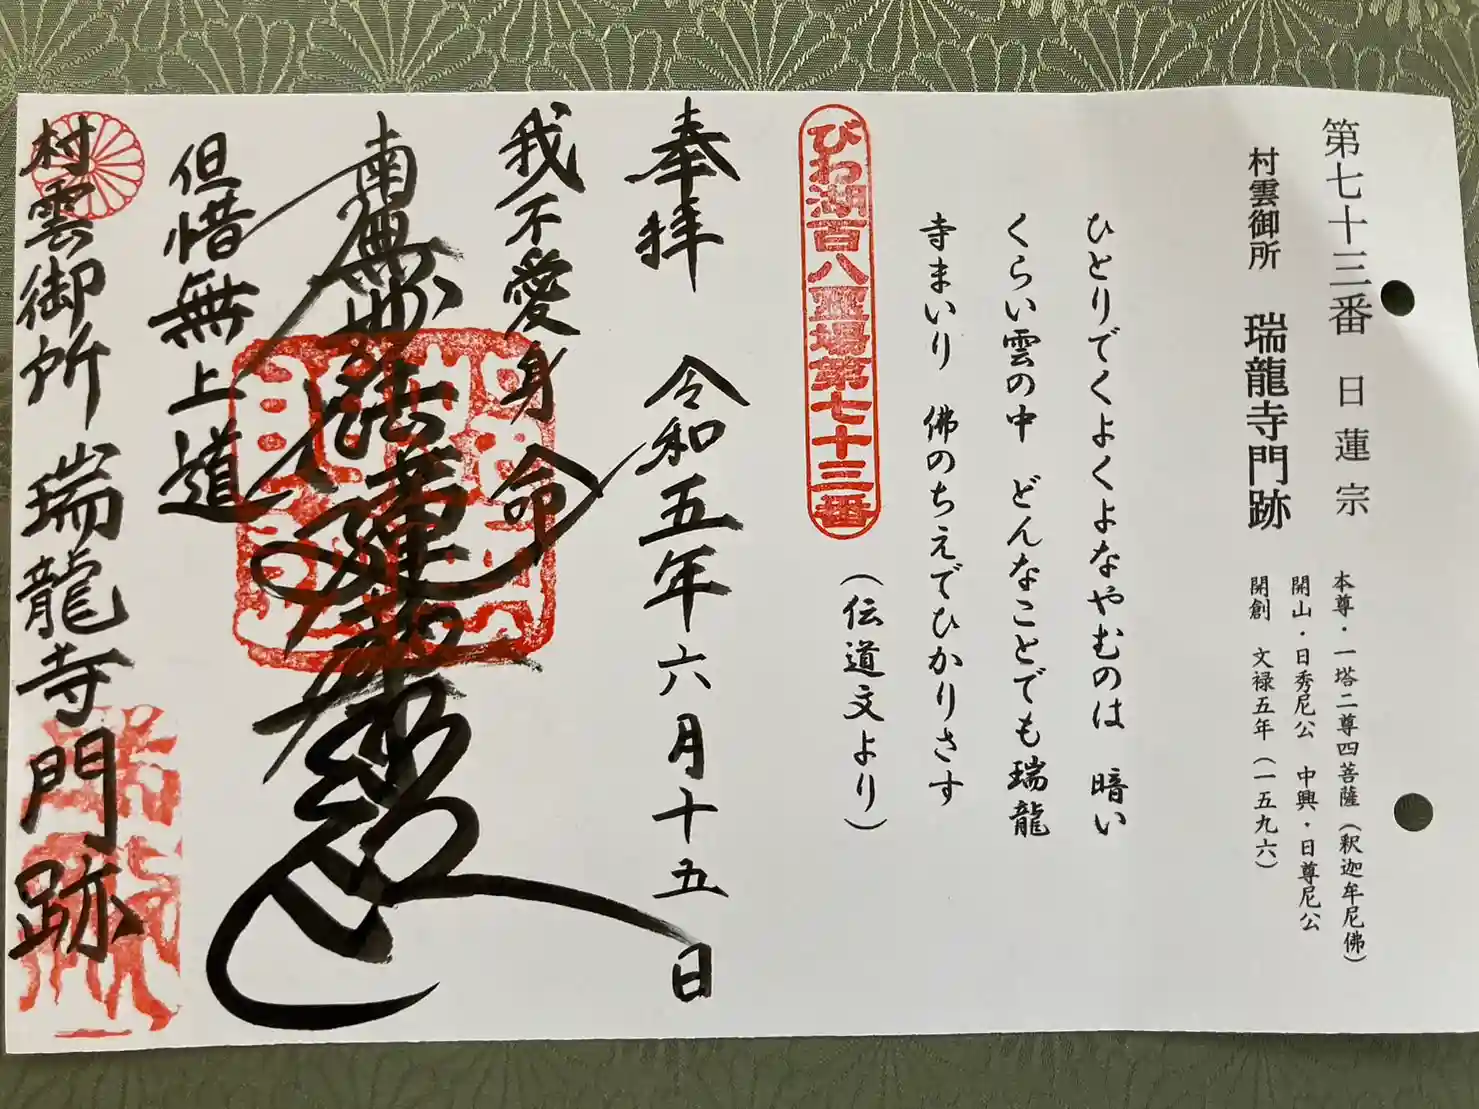 第七十三番 日蓮宗
本尊・一塔二尊四菩薩（釈迦牟尼佛）
村雲御所 瑞龍寺門跡
開山・日秀尼公 中興・日尊尼公
開創 文禄五年（一五九六）
ひとりでくよくよなやむのは 暗い
くらい雲の中 どんなことでも瑞龍
寺まいり 佛のちえでひかりさす
（伝道文より）
びわ湖百八霊場第七十三番
奉拝 令和五年六月十五日
我不愛身命
南無妙法蓮華経
但惜無上道
村雲御所 瑞龍寺門跡